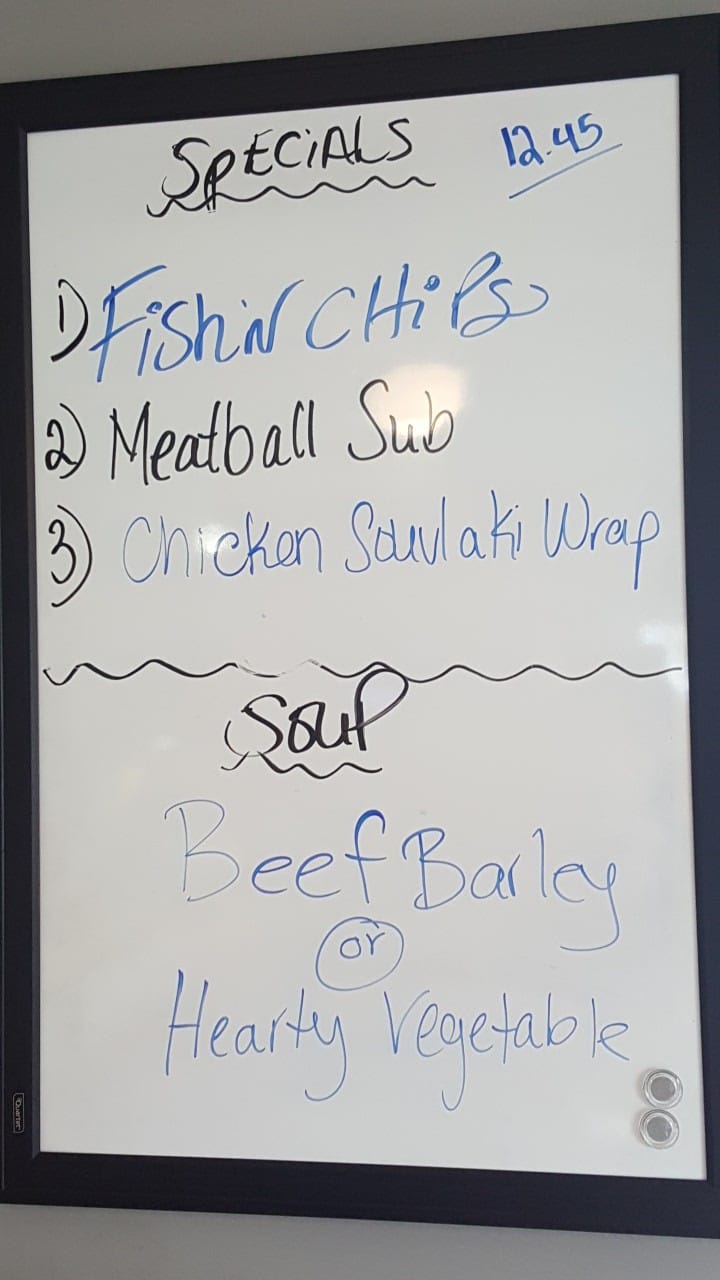 SPECiALS 12.45
1) Fish'N CHiPs
2) Meatball Sub
3) Chicken Souvlaki Wrap
SOUP
Beef Barley
or
Hearty Vegetable
Quartet